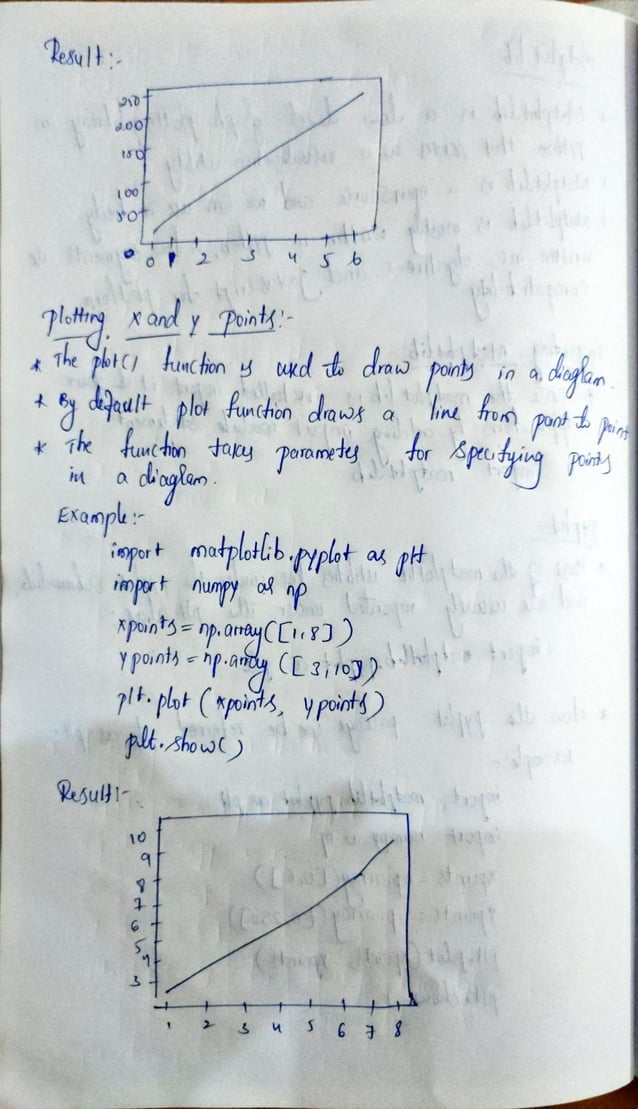 Result:-
250
200
150
100
50
0
0 1 2 3 4 5 6
Plotting x and y points:-
* The plot() function is used to draw points in a diagram.
* By default plot function draws a line from point to point
* The function takes parametes for specifying points
in a diagram.
Example:-
import matplotlib.pyplot as plt
import numpy as np
xpoints = np.array([1,8])
ypoints = np.array([3,10])
plt.plot (xpoints, ypoints)
plt.show()
Result:-
10
9
8
7
6
5
4
3
1 2 3 4 5 6 7 8